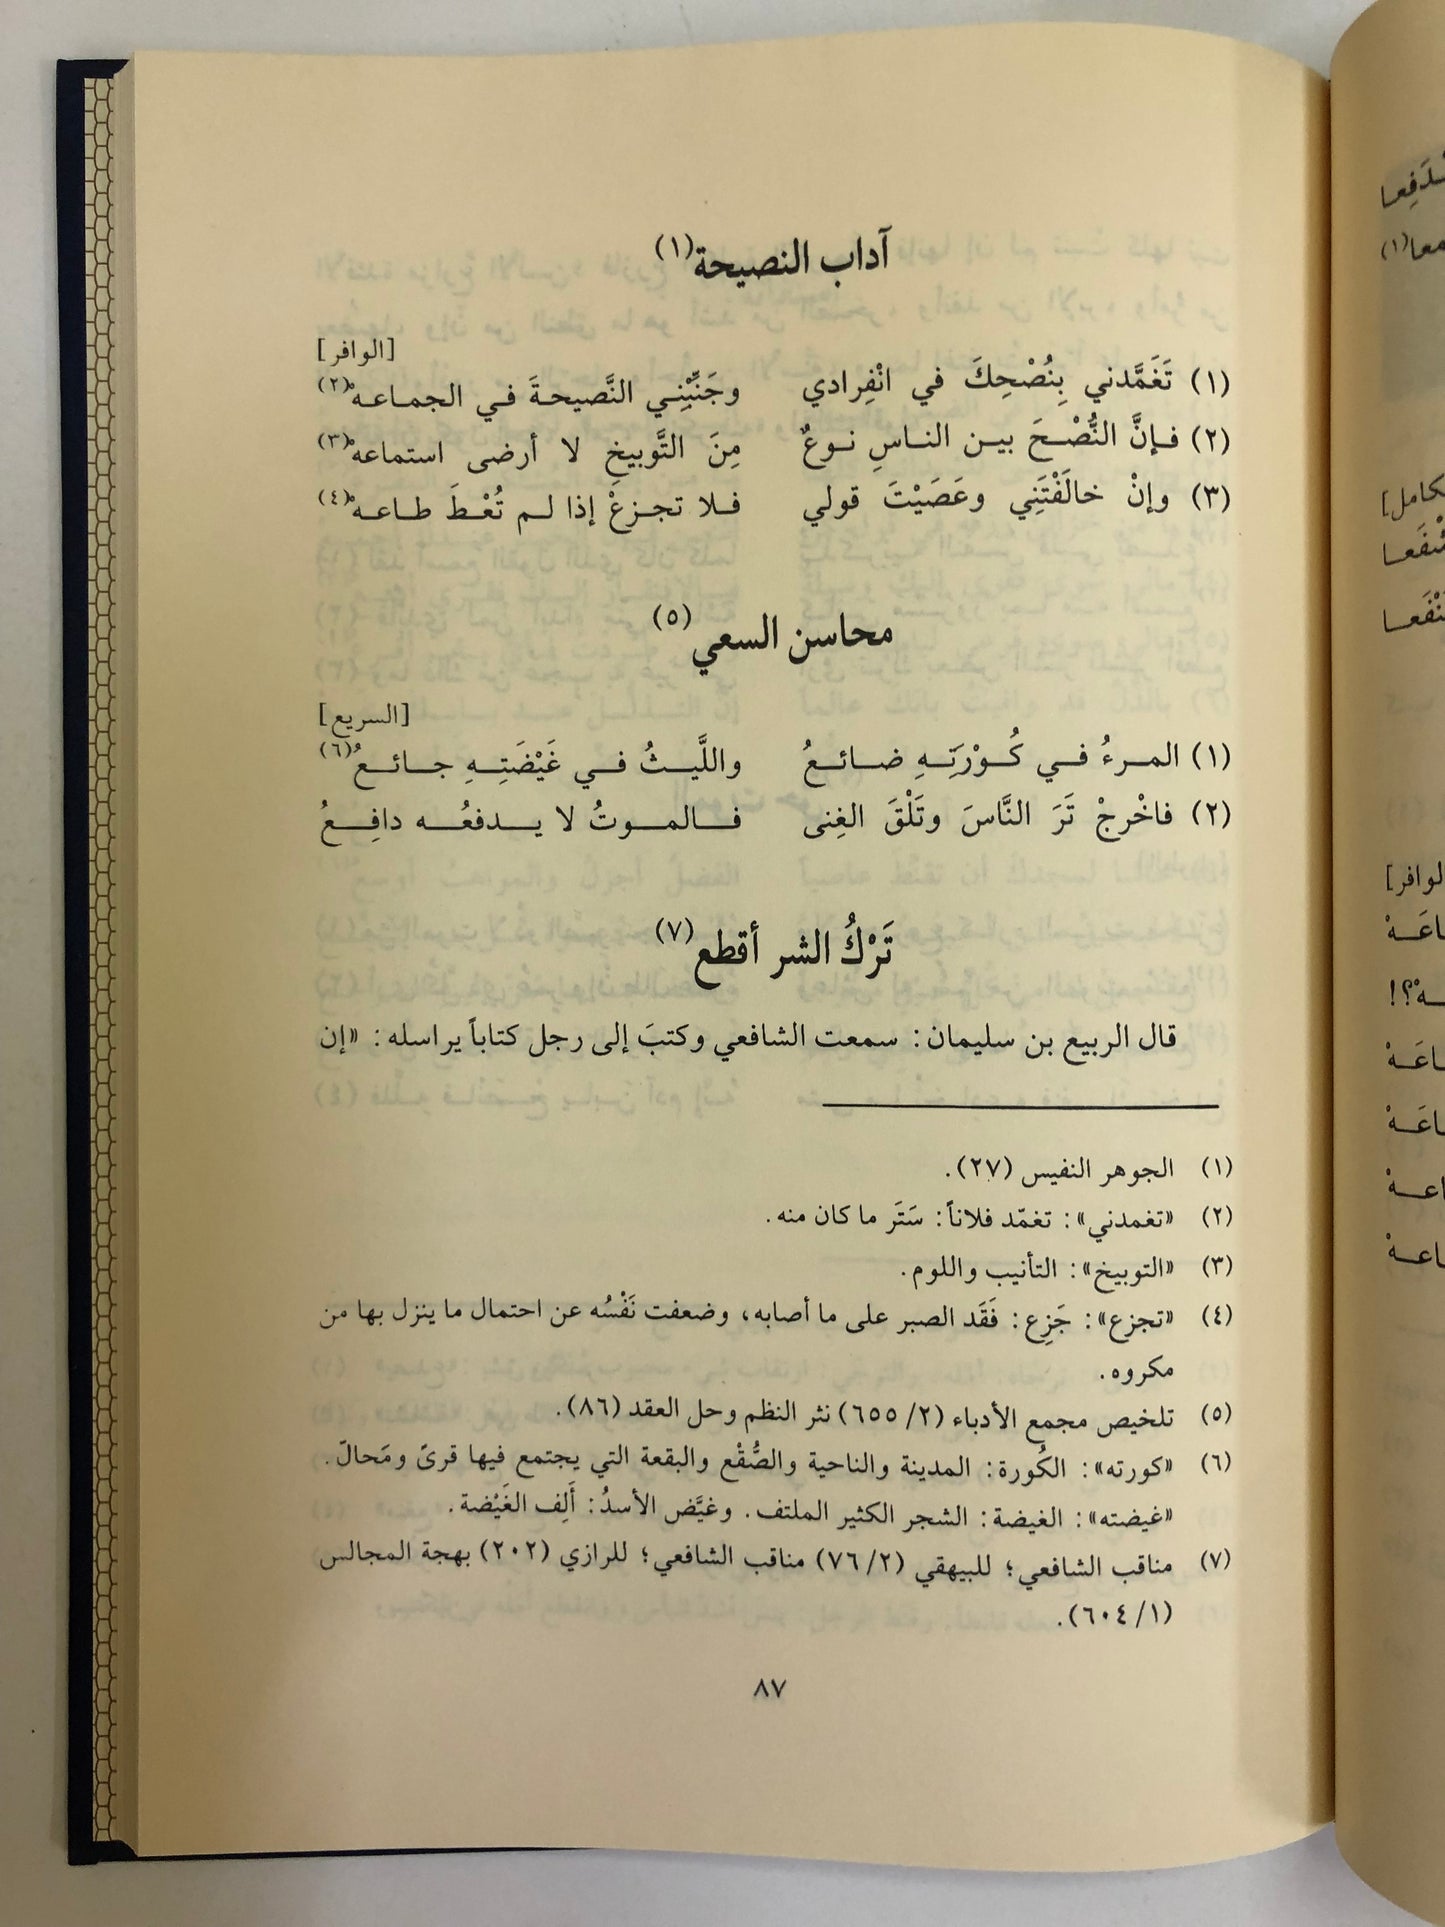 آداب النصيحة(١)
[الوافر]
(١) تَغَمَّدني بِنُصْحِكَ في انْفِرادي وجَنِّبْنِي النَّصيحةَ في الجماعهْ(٢)
(٢) فإنَّ النُّصْحَ بين الناسِ نوعٌ مِنَ التَّوبيخِ لا أرضى استماعهْ(٣)
(٣) وإنْ خالَفْتَنِي وعَصَيْتَ قولي فلا تجزعْ إذا لم تُعْطَ طاعهْ(٤)
محاسن السعي(٥)
[السريع]
(١) المرءُ في كُوْرَتِهِ ضائعُ واللَّيثُ في غَيْضَتِهِ جائعُ(٦)
(٢) فاخْرجْ تَرَ النَّاسَ وتَلْقَ الغِنى فالموتُ لا يدفعُه دافِعُ
تَرْكُ الشر أقطع(٧)
قال الربيع بن سليمان: سمعت الشافعي وكتبَ إلى رجل كتاباً يراسله: «إن
(١) الجوهر النفيس (٢٧).
(٢) «تغمدني»: تغمّد فلاناً: سَتَر ما كان منه.
(٣) «التوبيخ»: التأنيب واللوم.
(٤) «تجزع»: جَزِع: فَقَد الصبر على ما أصابه، وضعفت نَفْسُه عن احتمال ما ينزل بها من
مكروه.
(٥) تلخيص مجمع الأدباء (٢/ ٦٥٥) نثر النظم وحل العقد (٨٦).
(٦) «كورته»: الكُورة: المدينة والناحية والصُّقْع والبقعة التي يجتمع فيها قرىً ومَحالّ.
«غيضته»: الغيضة: الشجر الكثير الملتف. وغيَّض الأسدُ: أَلِف الغَيْضة.
(٧) مناقب الشافعي؛ للبيهقي (٢/ ٧٦) مناقب الشافعي؛ للرازي (٢٠٢) بهجة المجالس
(١/ ٦٠٤).
٨٧